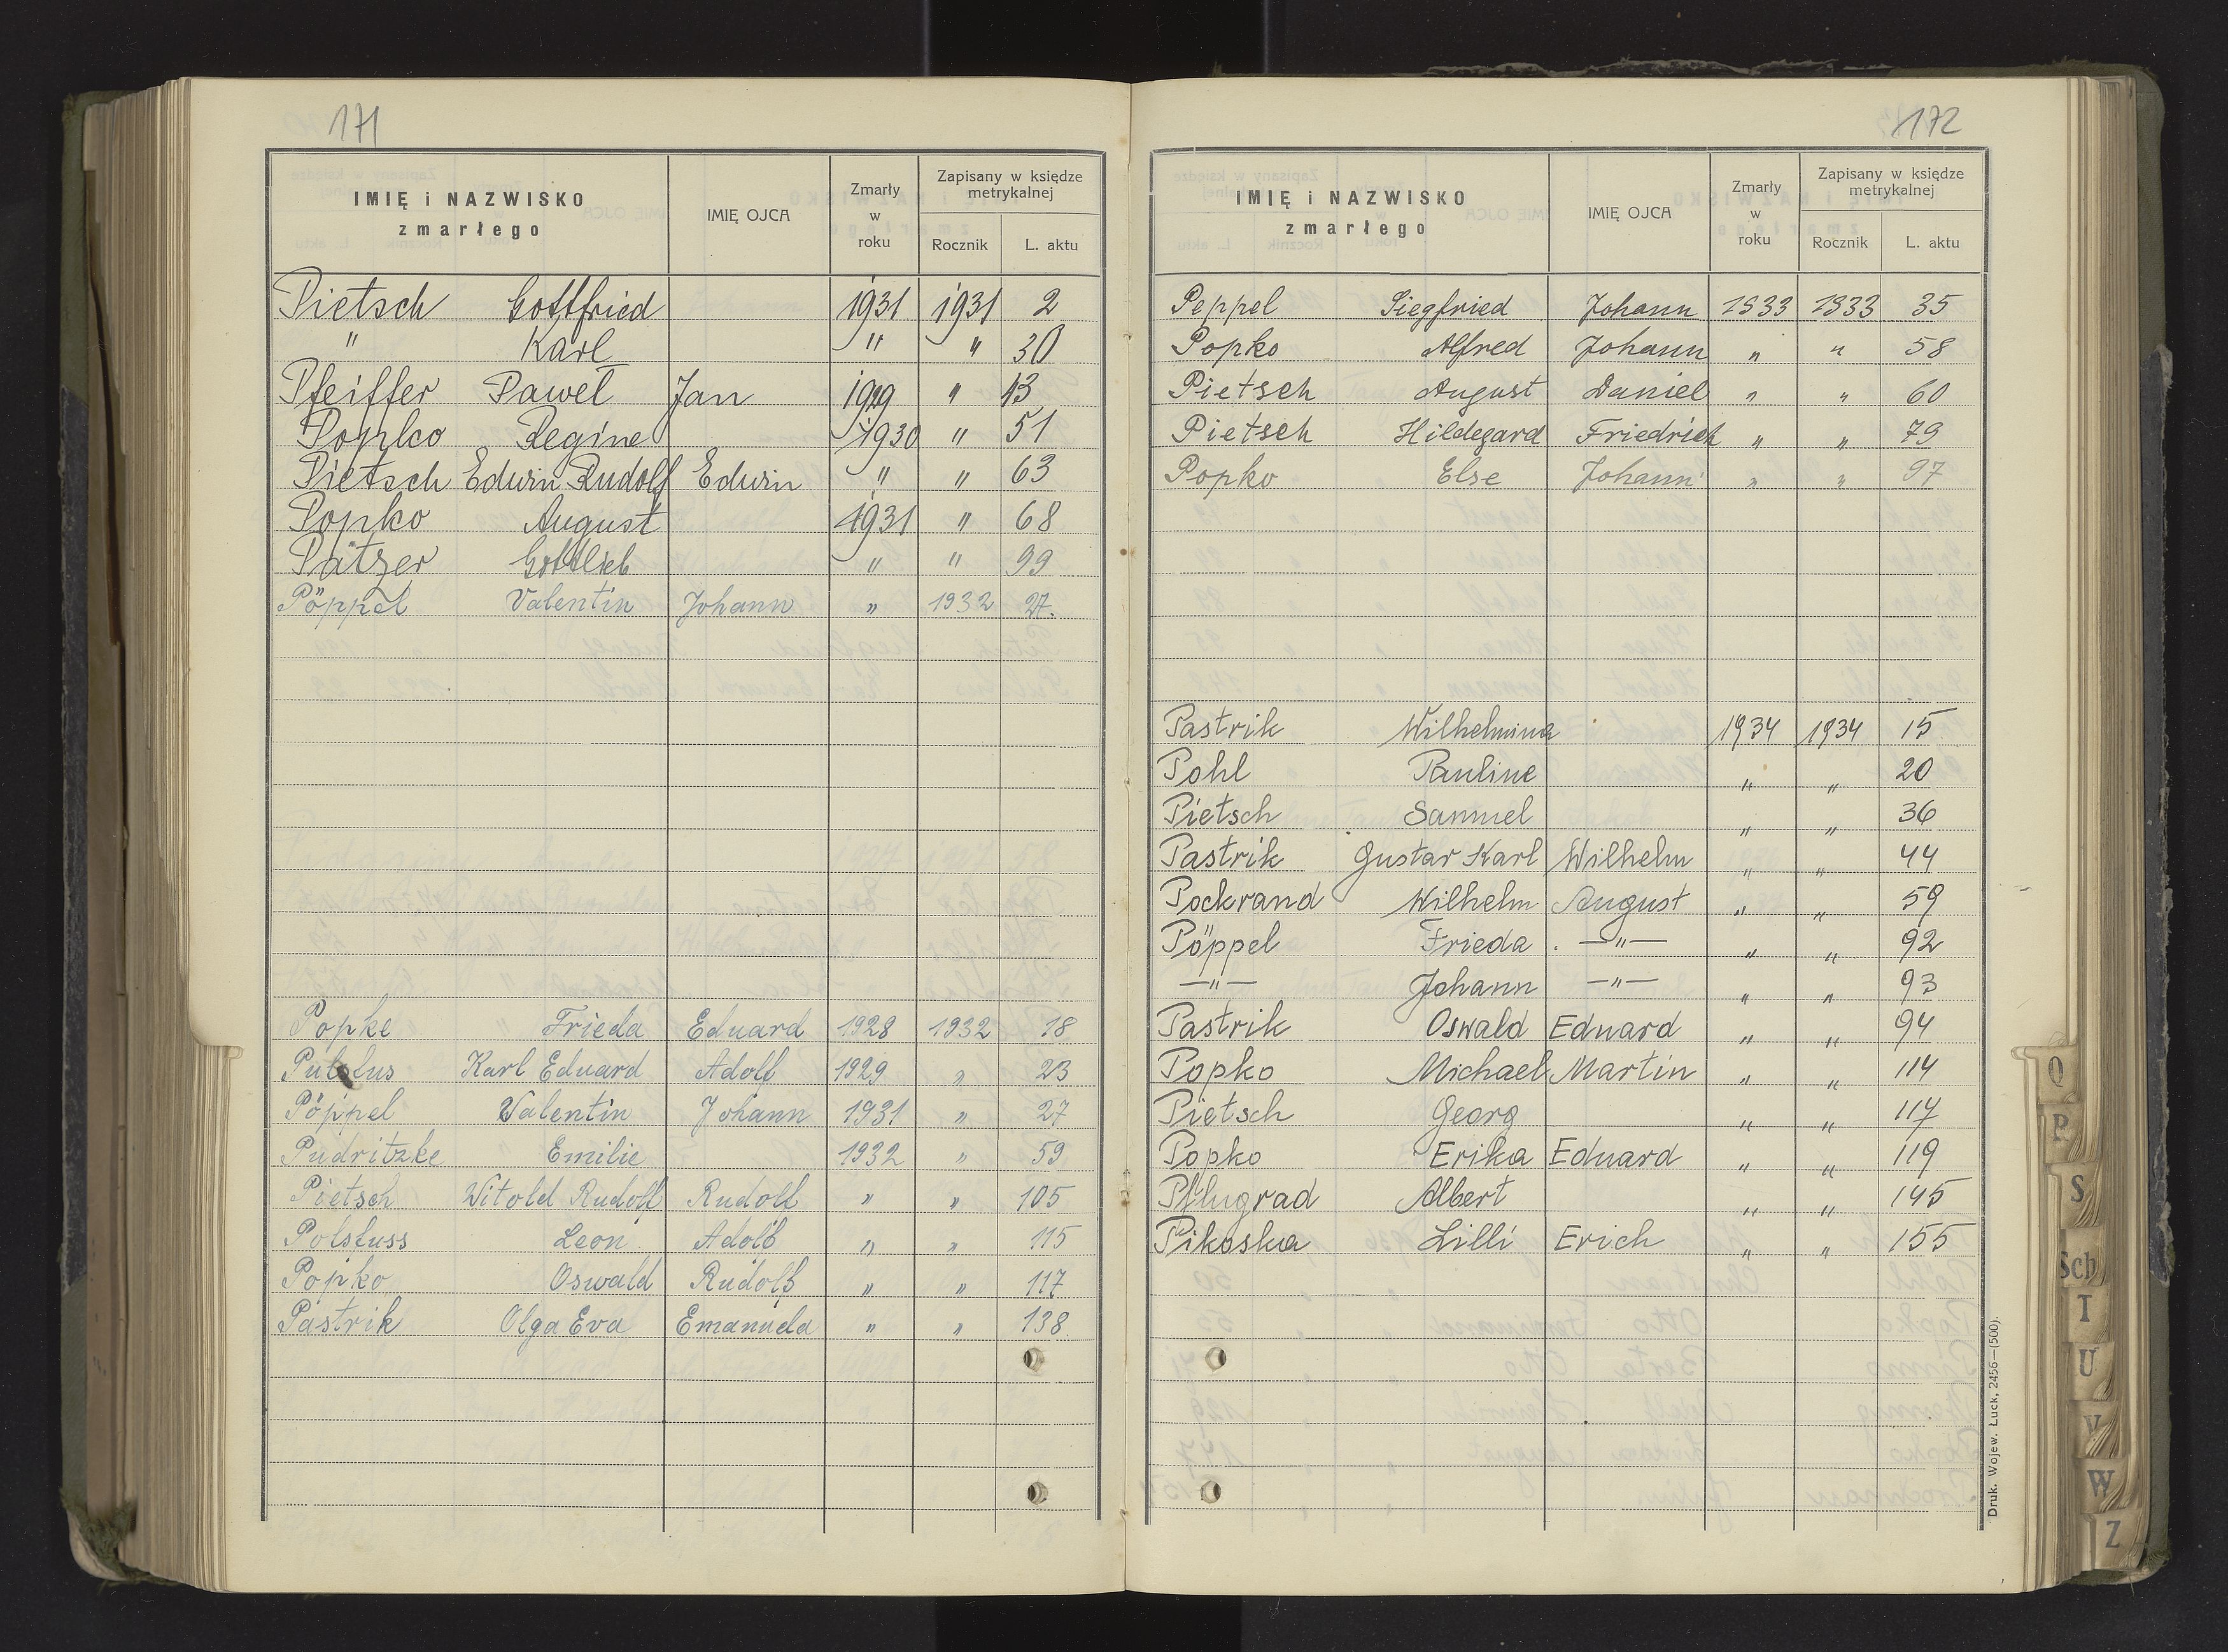 171
IMIĘ i NAZWISKO zmarłego IMIĘ OJCA Zmarły w roku Zapisany w księdze metrykalnej Rocznik L. aktu
Pietsch Gottfried 1931 1931 2
" Karl " " 30
Pfeiffer Paweł Jan 1929 " 13
Popko Regine 1930 " 51
Pietsch Edwin Rudolf Edwin " " 63
Popko August 1931 " 68
Pätzer Gottlieb " " 99
Pöppel Valentin Johann " 1932 27.
Popke Frieda Eduard 1928 1932 18
Karl Eduard Adolf 1929 " 23
Pöppel Valentin Johann 1931 " 27
Pudritzke Emilie 1932 " 59
Pietsch Witold Rudolf Rudolf " " 105
Polstuss Leon Adolf " " 115
Popko Oswald Rudolf " " 117
Pastrik Olga Eva Emanuela " " 138
172
IMIĘ i NAZWISKO zmarłego IMIĘ OJCA Zmarły w roku Zapisany w księdze metrykalnej Rocznik L. aktu
Peppel Siegfried Johann 1933 1933 35
Popko Alfred Johann " " 58
Pietsch August Daniel " " 60
Pietsch Hildegard Friedrich " " 79
Popko Else Johann " " 97
Pastrik Wilhelmina 1934 1934 15
Pohl Pauline " " 20
Pietsch Samuel " " 36
Pastrik Gustav Karl Wilhelm " " 44
Pockrand Wilhelm August " " 59
Pöppel Frieda —"— " " 92
—"— Johann —"— " " 93
Pastrik Oswald Eduard " " 94
Popko Michael Martin " " 114
Pietsch Georg " " 117
Popko Erika Eduard " " 119
Pflugrad Albert " " 145
Pikoska Lilli Erich " " 155
Druk. Wojew. Łuck, 2456—(500).
Q
P
S
Sch
T
U
V
W
Z